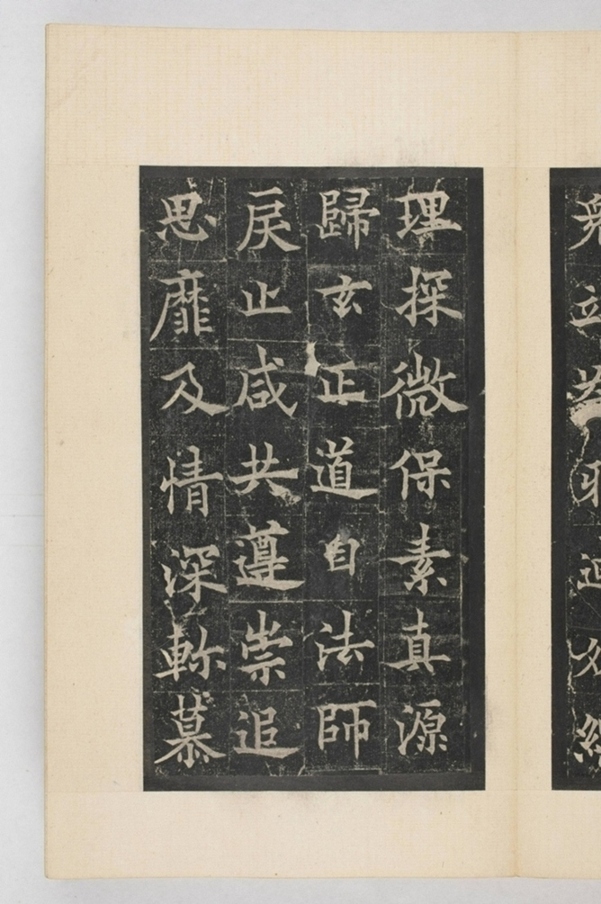 理探微保素真源
歸玄正道自法師
戾止咸共遵崇追
思靡及情深軫慕